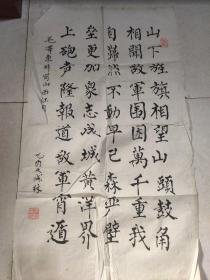 山下旌旗相望山頭鼓角
相聞敵軍圍困萬千重我
自巋然不動早已森嚴壁
壘更加衆志成城黄洋界
上砲声隆報道敵軍宵遁
毛澤東井岡山西江月
乙酉